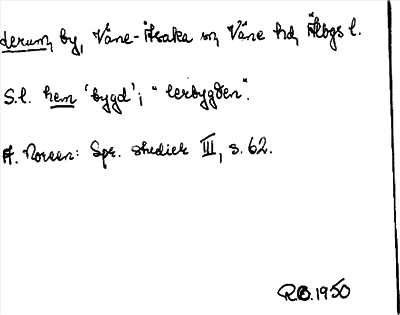 Lerum, by, Väne-Åsaka sn, Väne hd, Älvbgs l.
S.l. hem 'bygd'; "lerbygden".
A. Noreen: Spr. studier III, s. 62.
R.O. 1950